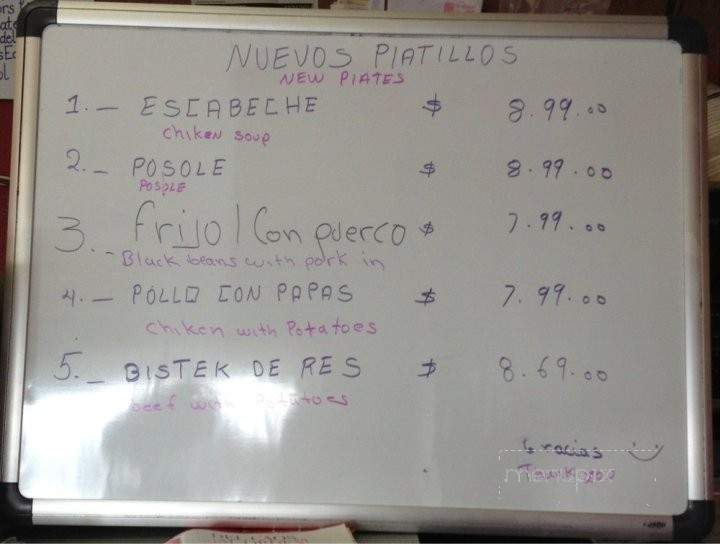 NUEVOS PLATILLOS
NEW PLATES
1.- ESCABECHE $ 8.99.00
chiken soup
2.- POSOLE $ 8.99.00
POSOLE
3.- frijol Con puerco $ 7.99.00
Black beans with pork in
4.- POLLO CON PAPAS $ 7.99.00
chiken with Potatoes
5.- BISTEK DE RES $ 8.69.00
beef with Potatoes
Gracias
Tank you